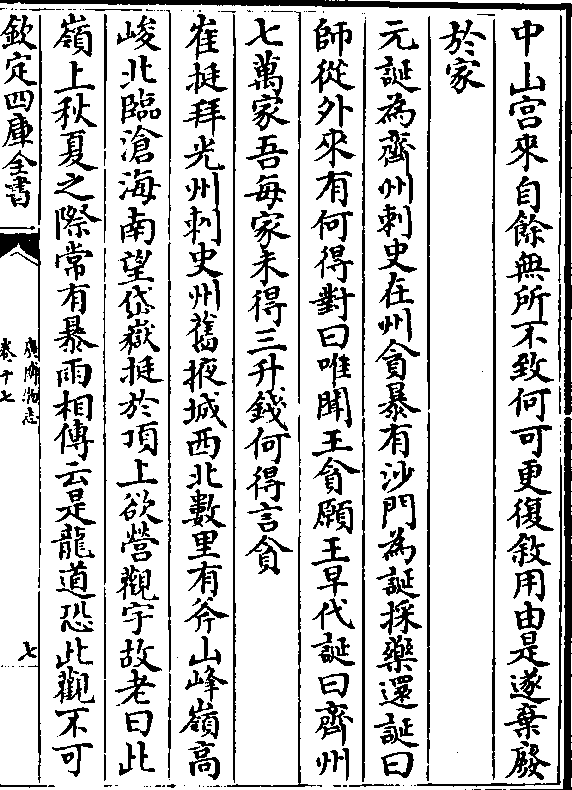 中山宫來自餘無所不致何可更復敘用由是遂棄廢
於家
元誕為齊州刺史在州貪暴有沙門為誕採藥還誕曰
師從外來有何得對曰唯聞王貪願王早代誕曰齊州
七萬家吾每家未得三升錢何得言貪
崔挺拜光州刺史州舊掖城西北數里有斧山峰嶺高
峻北臨滄海南望岱嶽挺於頂上欲營觀宇故老曰此
嶺上秋夏之際常有暴雨相傳云是龍道恐此觀不可
欽定四庫全書
廣博物志
卷十七
七